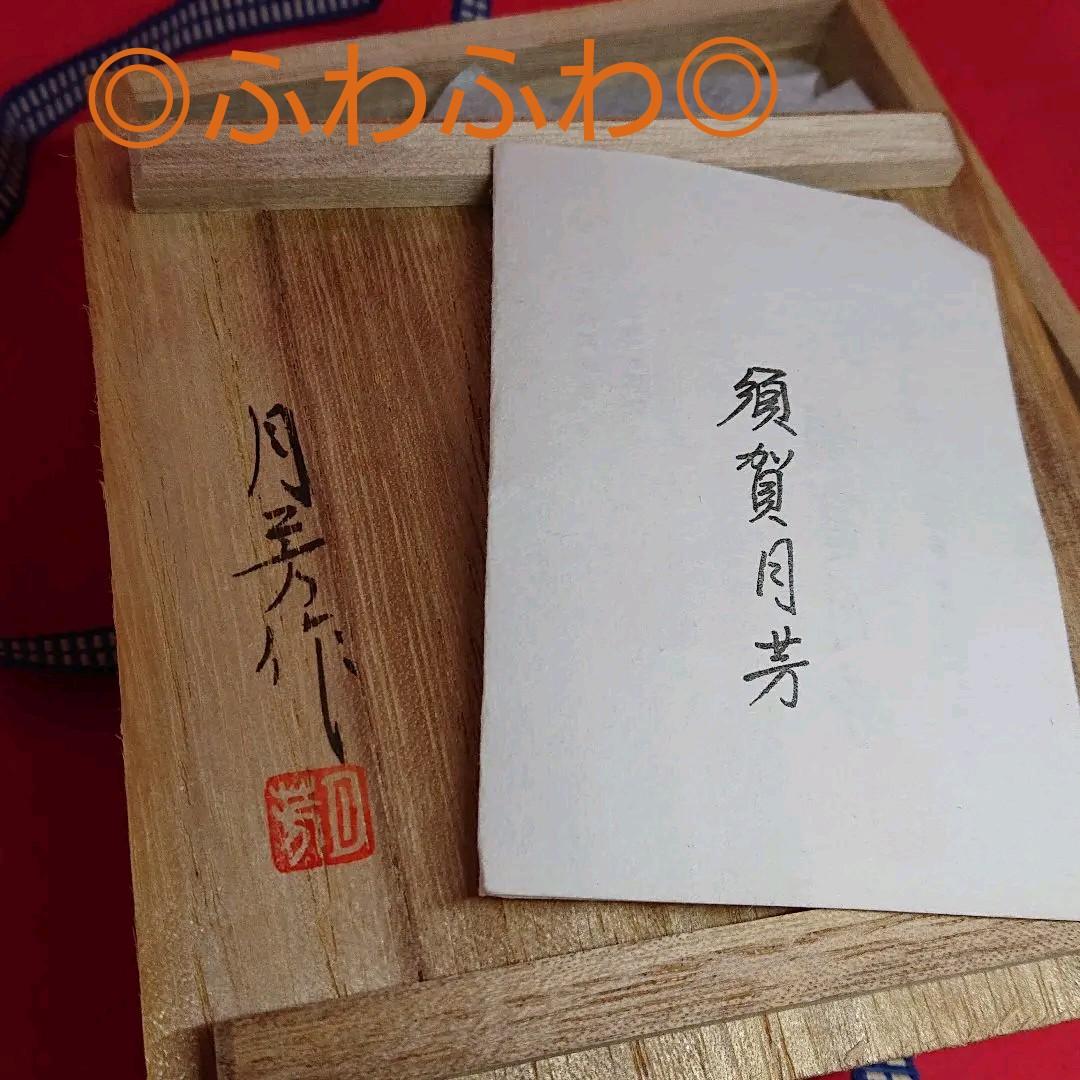 ◎ふわふわ◎
須賀月芳
月芳作
月芳